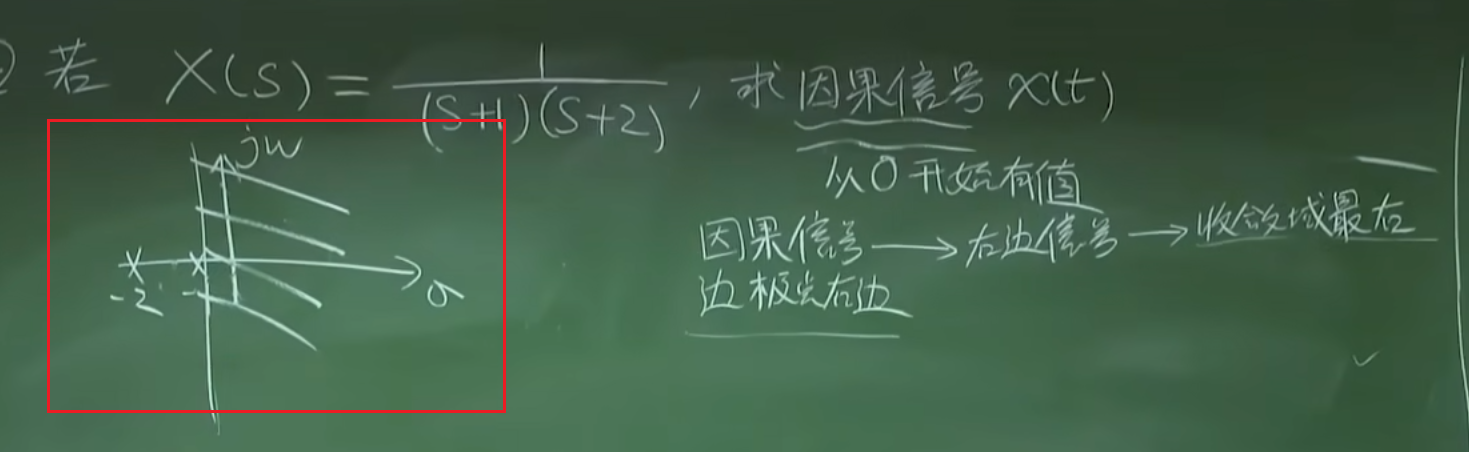 ② 若 X(S) = 1/((S+1)(S+2)), 求因果信号 x(t)
从0开始有值
因果信号 → 右边信号 → 收敛域最右
边极点右边
jw
σ
-2